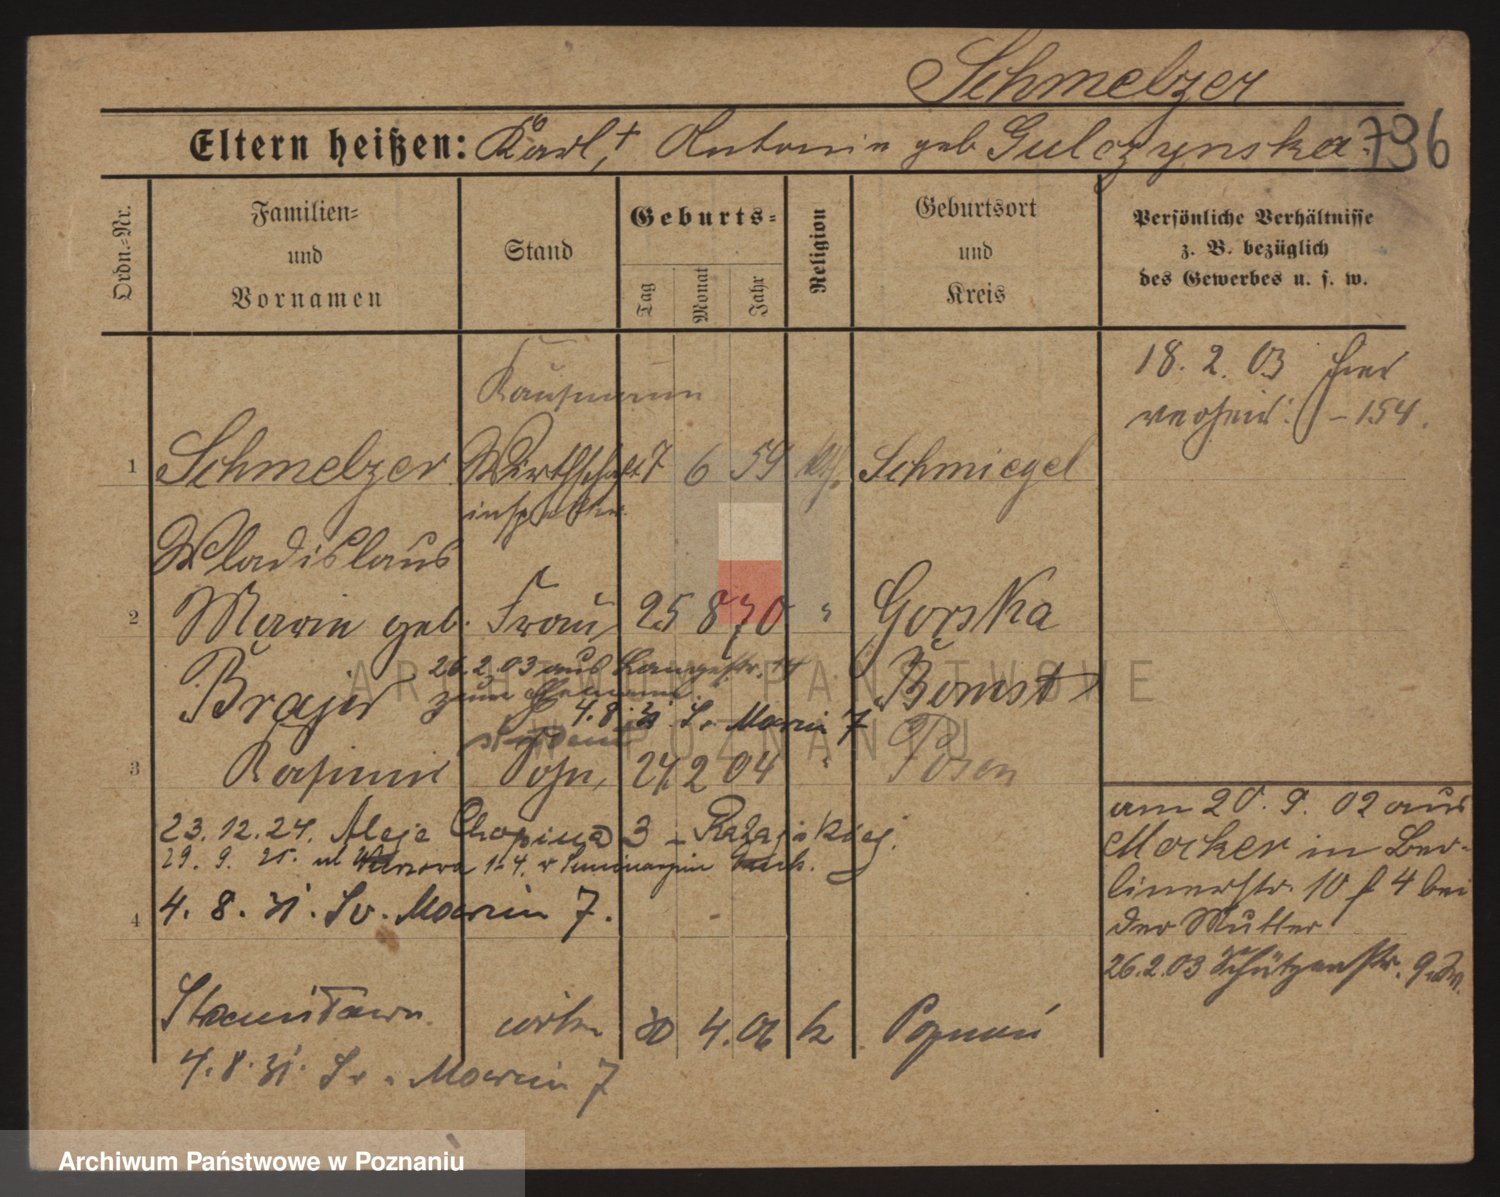 Schmelzer
Eltern heißen: Karl, † Antonie geb Gulczynska. 736
Ordn.=Nr.
Familien=
und
Vornamen
Stand
Geburts=
Tag
Monat
Jahr
Religion
Geburtsort
und
Kreis
Persönliche Verhältnisse
z. B. bezüglich
des Gewerbes u. s. w.
Kaufmann
18. 2. 03 hier
verheir: – 154.
1 Schmelzer Wirthschafts 7 6 59 kth. Schmiegel
inspektor
Wladislaus
2 Marie geb. Frau 25 8 70 " Gorska
26.2.03 aus Langestr. 14
Brajer zum Ehemann. Bomst
4.8.31 Św. Marcin 7
student
3 Kasimir Sohn, 24 2 04 " Posen
23.12.24. Aleje Chopina 3 –
29. 9. 25. ul 4. w
4 4. 8. 31. Św. Marcin 7.
am 20. 9. 02 aus
Mocker in Ber-
linerstr. 10 f 4 bei
der Mutter
26.2.03 Schützenstr.
Stanisława córka 30 4. 06 k Poznań
4.8.31. Św. Marcin 7
ARCHIWUM PAŃSTWOWE
W POZNANIU
Archiwum Państwowe w Poznaniu